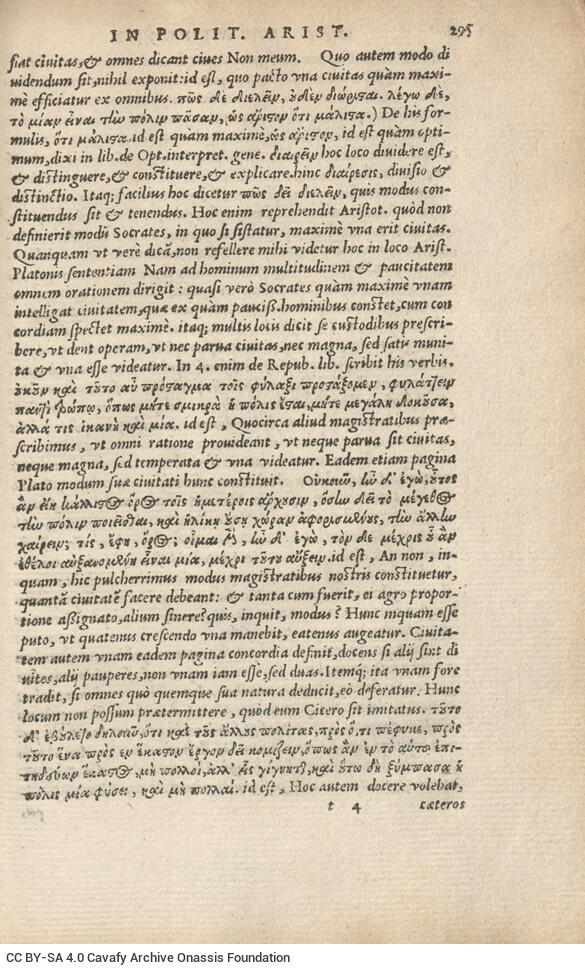 IN POLIT. ARIST. 295
fiat ciuitas, & omnes dicant ciues Non meum. Quo autem modo di
uidendum sit, nihil exponit: id est, quo pacto vna ciuitas quàm maxi-
mè efficiatur ex omnibus. πῶς δὲ διελεῖν, οὐδὲν διώρισται. λέγω δὲ,
τὸ μίαν εἶναι τὴν πόλιν πᾶσαν, ὡς ἄριστον ὅτι μάλιστα.) De his for-
mulis, ὅτι μάλιστα. id est quàm maximè, ὡς ἄριστον, id est quàm opti-
mum, dixi in lib. de Opt. interpret. gene. διαιρεῖν hoc loco diuidere est,
& distinguere, & constituere, & explicare. hinc διαίρεσις, diuisio &
distinctio. Itaq; facilius hoc dicetur πῶς δεῖ διελεῖν, quis modus con-
stituendus sit & tenendus. Hoc enim reprehendit Aristot. quòd non
definierit modū Socrates, in quo si sistatur, maximè vna erit ciuitas.
Quanquam vt verè dicā, non refellere mihi videtur hoc in loco Arist.
Platonis sententiam Nam ad hominum multitudinem & paucitatem
omnem orationem dirigit: quasi verò Socrates quàm maximè vnam
intelligat ciuitatem, quæ ex quàm pauciß. hominibus constet, cum con
cordiam spectet maximè. itaq; multis locis dicit se custodibus prescri-
bere, vt dent operam, vt nec parua ciuitas, nec magna, sed satis muni-
ta & vna esse videatur. In 4. enim de Repub. lib. scribit his verbis.
οὐκοῦν καὶ τοῦτο αὖ πρόσταγμα τοῖς φύλαξι προστάξομεν, φυλάττειν
παντὶ τρόπῳ, ὅπως μήτε σμικρὰ ἡ πόλις ἔσται, μήτε μεγάλη δοκοῦσα,
ἀλλά τις ἱκανὴ καὶ μία. id est, Quocirca aliud magistratibus præ-
scribimus, vt omni ratione prouideant, vt neque parua sit ciuitas,
neque magna, sed temperata & vna videatur. Eadem etiam pagina
Plato modum suæ ciuitati hunc constituit. Οὐκοῦν, ἦν δ' ἐγὼ, οὗτος
ἂν εἴη κάλλιστος ὅρος τοῖς ἡμετέροις ἄρχουσιν, ὅσην δεῖ τὸ μέγεθος
τὴν πόλιν ποιεῖσθαι, καὶ ἡλίκῃ οὔσῃ χώραν ἀφορισαμένους, τὴν ἄλλην
χαίρειν; τίς, ἔφη, ὅρος; οἶμαι μὲν, ἦν δ' ἐγὼ, τόν δε μέχρις οὗ ἂν
ἐθέλοι αὐξανομένη εἶναι μία, μέχρι τούτου αὔξειν. id est, An non, in-
quam, hic pulcherrimus modus magistratibus nostris constituetur,
quantā ciuitatē facere debeant: & tanta cum fuerit, ei agro propor-
tione aßignato, alium sinere? quis, inquit, modus? Hunc inquam esse
puto, vt quatenus crescendo vna manebit, eatenus augeatur. Ciuita-
tem autem vnam eadem pagina concordia definit, docens si alij sint di
uites, alij pauperes, non vnam iam esse, sed duas. Itemq; ita vnam fore
tradit, si omnes quò quemque sua natura deducit, eò deferatur. Hunc
locum non possum prætermittere, quòd eum Cicero sit imitatus. τοῦτο
δ' ἐβούλετο δηλοῦν, ὅτι καὶ τοὺς ἄλλους πολίτας, πρὸς ὅ, τι πέφυκε, πρὸς
τοῦτο ἕνα πρὸς ἓν ἕκαστον ἔργον δεῖ κομίζειν, ὅπως ἂν ἓν τὸ αὑτοῦ ἐπι-
τηδεύων ἕκαστος, μὴ πολλοί, ἀλλ' εἷς γίγνηται, καὶ οὕτω δὴ ξύμπασα ἡ
πόλις μία φύσει, καὶ μὴ πολλαί. id est, Hoc autem docere volebat,
t 4 cæteros
CC BY-SA 4.0 Cavafy Archive Onassis Foundation